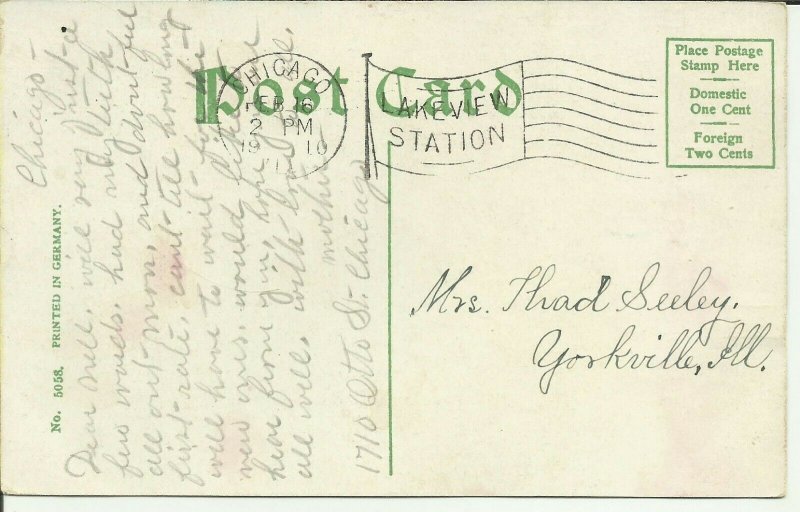 Post Card
CHICAGO
FEB 16
2 PM
19 10
LAKEVIEW
STATION
Place Postage
Stamp Here
Domestic
One Cent
Foreign
Two Cents
No. 5058. PRINTED IN GERMANY.
Chicago-
Dear Nell, will say just a
few words. had my teeth
all out mon, and dont feel
first-rate, cant tell how long
will have to wait for the
new ones, would like to
hear from you, hope you are
all well, with love
mother
1710 Otto St. Chicago
Mrs. Thad Seeley.
Yorkville, Ill.